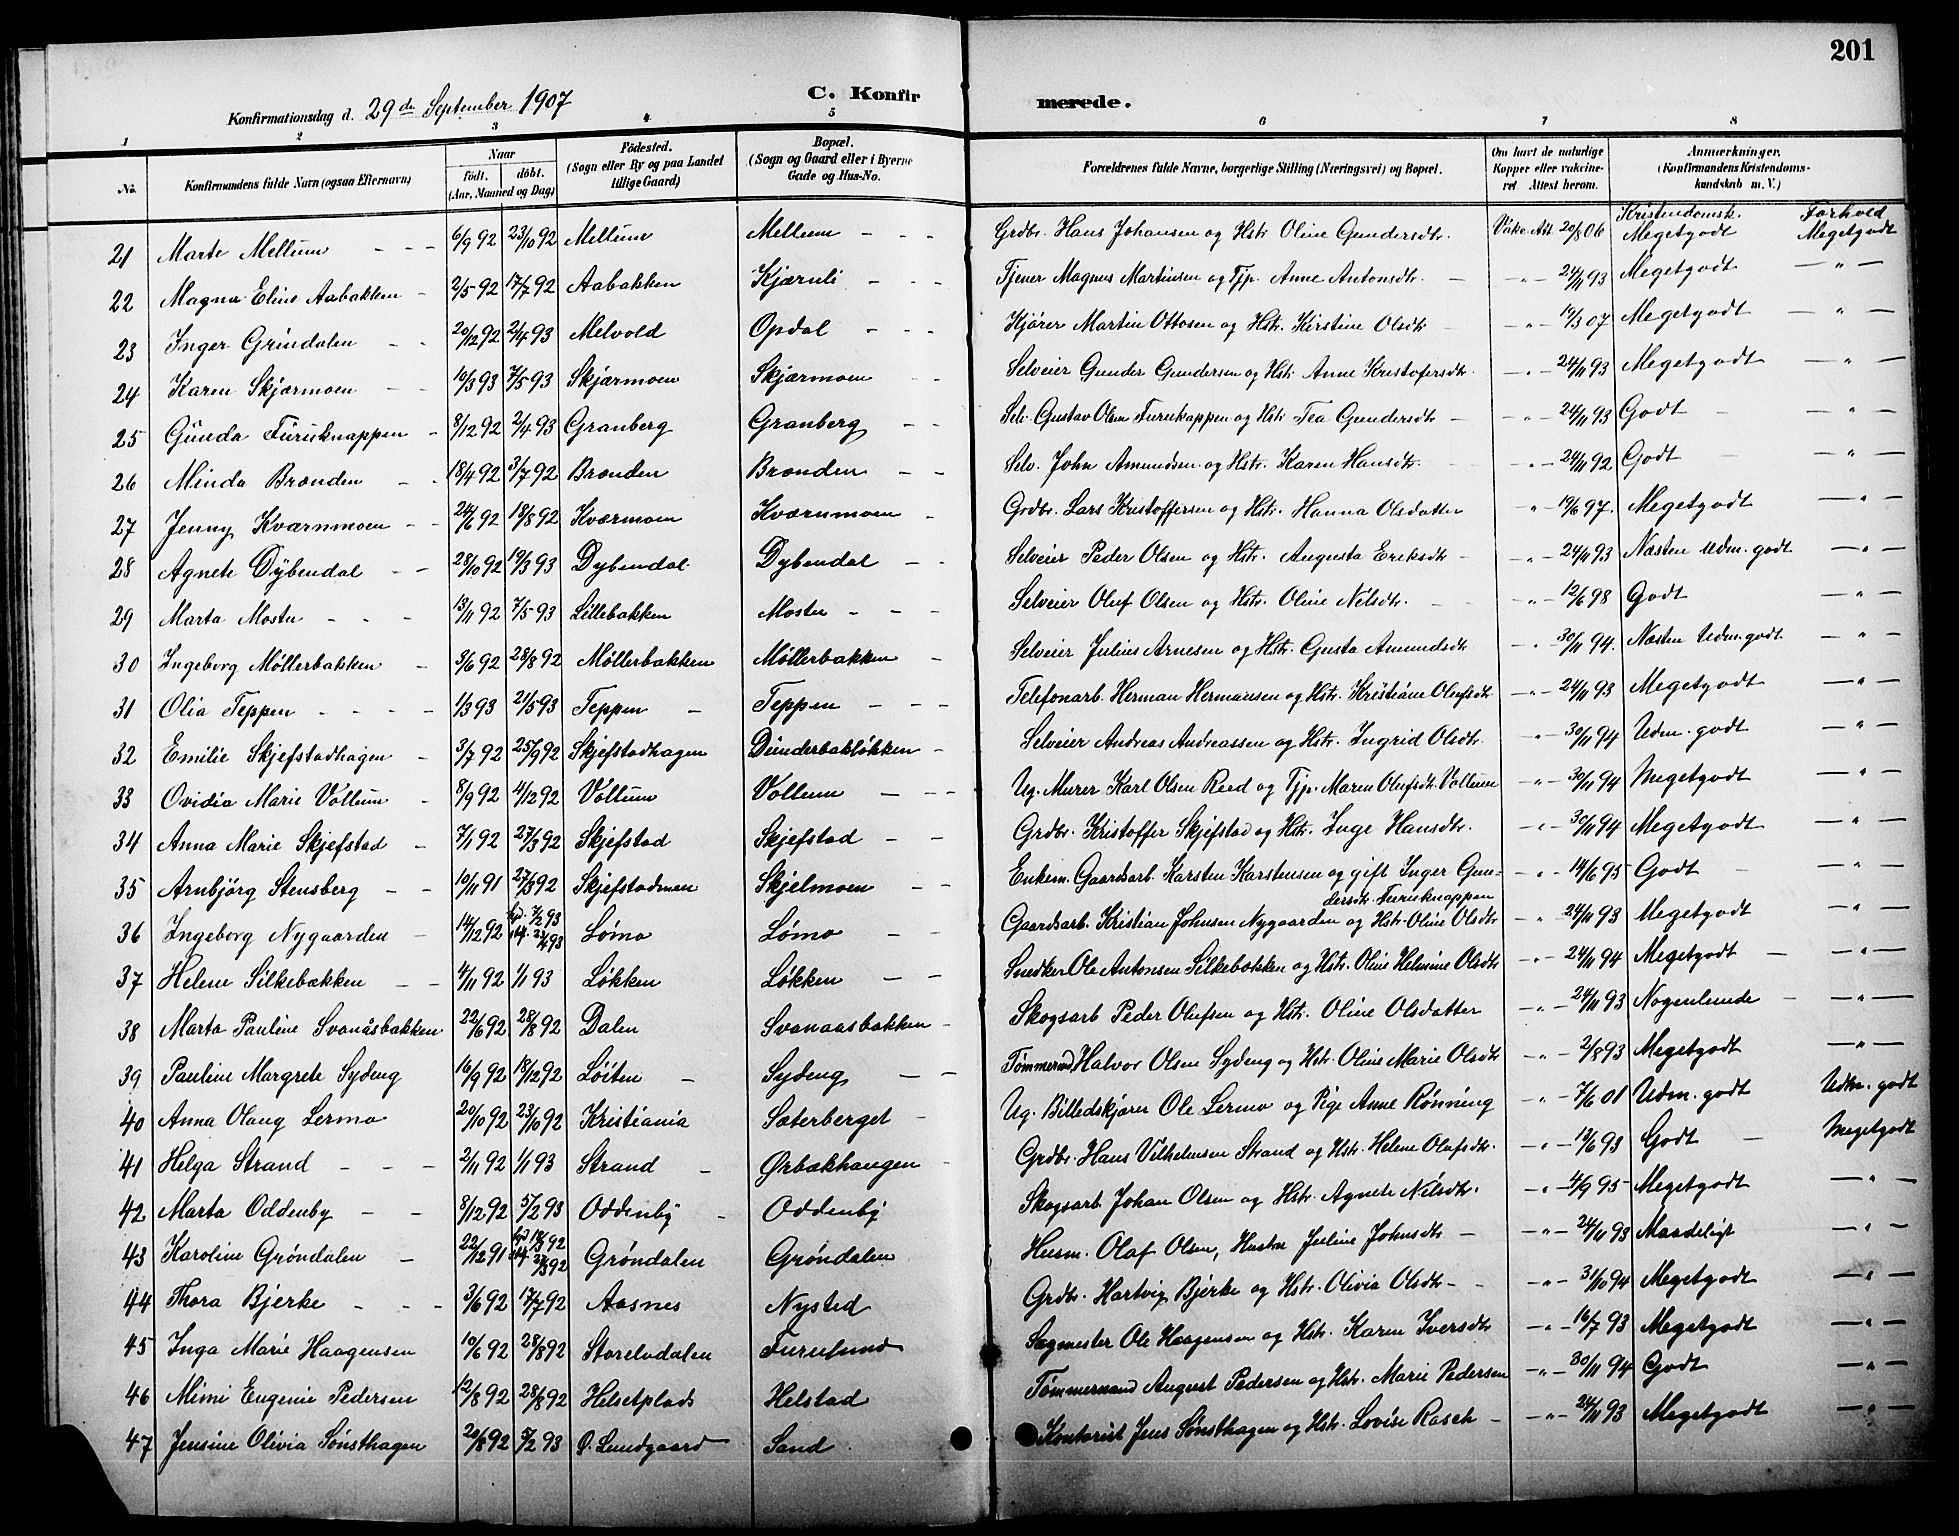 201
Konfirmationsdag d. 29de September 1907 C. Konfirmerede.
1 2 3 4 5 6 7 8
No. Konfirmandens fulde Navn (ogsaa Efternavn) Naar født. døbt. (Aar, Maaned og Dag) Fødested. (Sogn eller By og paa Landet tillige Gaard) Bopæl. (Sogn og Gaard eller i Byerne Gade og Hus-No. Forældrenes fulde Navne, borgerlige Stilling (Næringsvei) og Bopæl. Om havt de naturlige Kopper eller vakcineret. Attest herom. Anmærkninger. (Konfirmandens Kristendomskundskab m. V.)
Kristendomsk. Forhold
21 Marte Mellum - - - 6/9 92 23/10 92 Mellum Mellum - - - Grdbr. Hans Johansen og Hstr. Oline Gundersdtr. Vakc. Att 20/8 06 Megetgodt Megetgodt
22 Magna Eline Aabakken - 2/5 92 17/7 92 Aabakken Kjærnli - - - Tjener Magnus Martinsen og Tjp. Anne Antonsdtr. - " - 24/11 93 Megetgodt - " -
23 Inger Grindalen - - 20/12 92 2/4 93 Melvold Opdal - - - Kjører Martin Ottosen og Hstr. Kirstine Olsdtr - " - 19/3 07 Megetgodt - " -
24 Karen Skjærmoen - - 10/3 93 7/5 93 Skjærmoen Skjærmoen - - Selveier Gunder Gundersen og Hstr. Anne Kristofersdtr. - " - 24/11 93 Megetgodt - " -
25 Gunda Furuknappen - 8/12 92 2/4 93 Granberg Granberg - - Selv. Gustav Olsen Furukappen og Hstr. Tea Gundersdtr - - " - 24/11 93 Godt - " -
26 Minda Brænden - - 18/4 92 3/7 92 Brænden Brænden - - Selv. John Amundsen og Hstr. Karen Hansdtr. - " - 24/11 92 Godt - " -
27 Jenny Kværnmoen - - 24/6 92 18/8 92 Kværmoen Kværnmoen - Grdbr. Lars Kristoffersen og Hstr. Hanna Olsdatter " - 19/6 97. Megetgodt - " -
28 Agnete Dybendal - - 28/10 92 19/3 93 Dybendal Dybendal - - Selveier Peder Olsen og Hstr. Augusta Eriksdtr - - " - 24/11 93 Næsten Udm. godt - " -
29 Marta Mostu - - - 13/11 92 7/5 93 Lillebakken Mostu - - - Selveier Oluf Olsen og Hstr. Oline Nilsdtr. - " - 12/6 98 Godt - " -
30 Ingeborg Møllerbakken - 3/6 92 28/8 92 Møllerbakken Møllerbakken - Selveier Julius Arnesen og Hstr. Gusta Amundsdtr - " - 30/11 94. Næsten Udm. godt - " -
31 Olia Teppen - - - - 1/3 93 21/5 93 Teppen - Teppen - - - Telefonarb. Herman Hermansen og Hstr. Kristiane Olufsdtr - " - 24/11 93 Megetgodt - " -
32 Emilie Skjefstadhagen - 3/7 92 25/9 92 Skjefstadhagen Dunderbakløkken - Selveier Andreas Andreassen og Hstr. Ingrid Olsdtr. " - 30/11 94 Udm. godt "
33 Ovidia Marie Vollum - 8/9 92 4/12 92 Vollum Vollum - - - Ug. Murer Karl Olsen Reed og Tjp. Maren Olufsdtr. Vollum - " - 30/11 94 Megetgodt - " -
34 Anna Marie Skjefstad - 7/1 92 27/3 92 Skjefstad Skjefstad - - Grdbr. Kristoffer Skjefstad og Hstr. Inge Hansdtr. - " - 30/11 94 Megetgodt - " -
35 Arnbjörg Stensberg - - 10/11 91 27/3 92 Skjefstadmoen Skjelmoen - - Enkem. Gaardsarb. Karsten Karstensen og gift Inger Gun- - " - 14/6 95 Godt - - " -
dersdtr. Furuknappen
36 Ingeborg Nygaarden - 14/12 92 hjd. 7/2 93 st. 23/4 93 Lømo Lømo - - Gaardsarb. Kristian Johnsen Nygaarden og Hstr. Oline Olsdtr - " - 24/11 93 Megetgodt - " -
37 Helene Silkebækken - - 4/11 92 1/1 93 Løkken Løkken - - Snedker Ole Antonsen Silkebækken og Hstr. Oline Helmine Olsdtr - " - 24/11 94 Megetgodt - - " -
38 Marta Pauline Svanåsbakken 22/6 92 28/8 92 Dalen Svanaasbakken - Skogsarb Peder Olufsen og Hstr. Oline Olsdatter - " - 24/11 93 Nogenlunde - - " -
39 Pauline Margrete Sydeng 16/9 92 18/12 92 Løiten - Sydeng - - Tømmermd Halvor Olsen Sydeng og Hstr. Oline Marie Olsdtr - " - 2/8 93 Megetgodt - " -
40 Anna Olaug Lermo 20/10 92 23/10 92 Kristiania Sæterberget - Ug. Billedskjærer Ole Lermo og Pige Anne Rönning - " - 7/6 01 Udm. godt Udm. godt
41 Helga Strand - - - 2/11 92 1/1 93 Strand - Ørbækhaugen - Grdbr. Hans Vilhelmsen Strand og Hstr. Helene Olafsdtr. - " - 13/6 93 Godt - Megetgodt
42 Marta Oddenby - - 8/12 92 5/2 93 Oddenby - Oddenby Skogsarb Johan Olsen og Hstr. Agnete Nilsdtr. - " - 4/9 95 Megetgodt - " -
43 Karoline Grøndalen - 22/12 91 hjd 18/1 92 st. 27/3 92 Grøndalen Grøndalen Husm. Olaf Olsen, Hustru Juline Johnsdtr - - " - 24/11 93 Maadeligt - " -
44 Thora Bjerke - - - 3/6 92 17/7 92 Aasnes Nysted Grdbr. Hartvig Bjerke og Hstr. Olivia Olsdtr - - - " - 31/10 94 Megetgodt - " -
45 Inga Marie Haagensen 10/6 92 28/8 92 Storelvdalen Furulund Sagmester Ole Haagensen og Hstr. Karen Iversdtr - " - 16/7 93 Megetgodt - " -
46 Mimi Eugenie Pedersen 12/8 92 28/8 92 Helsetplads Helstad Tømmermand August Pedersen og Hstr. Marie Pedersen - " - 30/11 94 Godt - " -
47 Jensine Olivia Sønsthagen 20/8 92 5/2 93 Ø. Lundgaard Sand Kontorist Jens Sønsthagen og Hstr. Lovise Rasch - - " - 24/11 93 Megetgodt - " -